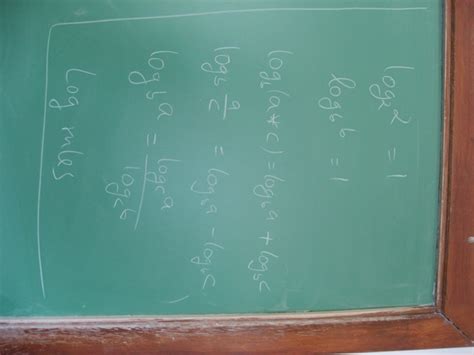 log₂ 2 = 1
log_b b = 1
log_b(a*c) = log_b a + log_b c
log_b a/c = log_b a - log_b c
log_b a = log_c a / log_c b
log rules